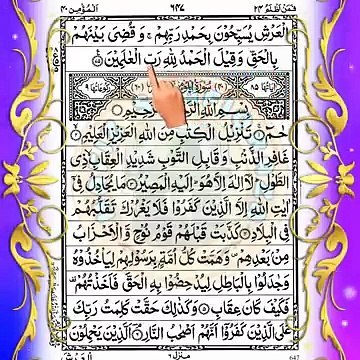 فمن اظلم ٢٤ ٦٤٧ المؤمن ٤٠
الْعَرْشِ يُسَبِّحُوْنَ بِحَمْدِ رَبِّهِمْ ۚ وَ قُضِیَ بَیْنَهُمْ
بِالْحَقِّ وَ قِیْلَ الْحَمْدُ لِلّٰهِ رَبِّ الْعٰلَمِیْنَ
بِسْمِ اللّٰهِ الرَّحِیْمِ
حٰمٓ ۚ تَنْزِیْلُ الْكِتٰبِ مِنَ اللّٰهِ الْعَزِیْزِ الْعَلِیْمِ
غَافِرِ الذَّنْۢبِ وَ قَابِلِ التَّوْبِ شَدِیْدِ الْعِقَابِ ذِی
الطَّوْلِ لَاۤ اِلٰهَ اِلَّا هُوَ اِلَیْهِ الْمَصِیْرُ مَا یُجَادِلُ فِیْۤ
اٰیٰتِ اللّٰهِ اِلَّا الَّذِیْنَ كَفَرُوْا فَلَا یَغْرُرْكَ تَقَلُّبُهُمْ
فِی الْبِلَادِ كَذَّبَتْ قَبْلَهُمْ قَوْمُ نُوْحٍ وَّ الْاَحْزَابُ
مِنْۢ بَعْدِهِمْ وَ هَمَّتْ كُلُّ اُمَّةٍۭ بِرَسُوْلِهِمْ لِیَاْخُذُوْهُ
وَ جٰدَلُوْا بِالْبَاطِلِ لِیُدْحِضُوْا بِهِ الْحَقَّ فَاَخَذْتُهُمْ
فَكَیْفَ كَانَ عِقَابِ وَ كَذٰلِكَ حَقَّتْ كَلِمَتُ رَبِّكَ
عَلَی الَّذِیْنَ كَفَرُوْۤا اَنَّهُمْ اَصْحٰبُ النَّارِ اَلَّذِیْنَ یَحْمِلُوْنَ
منزل ٦ 647